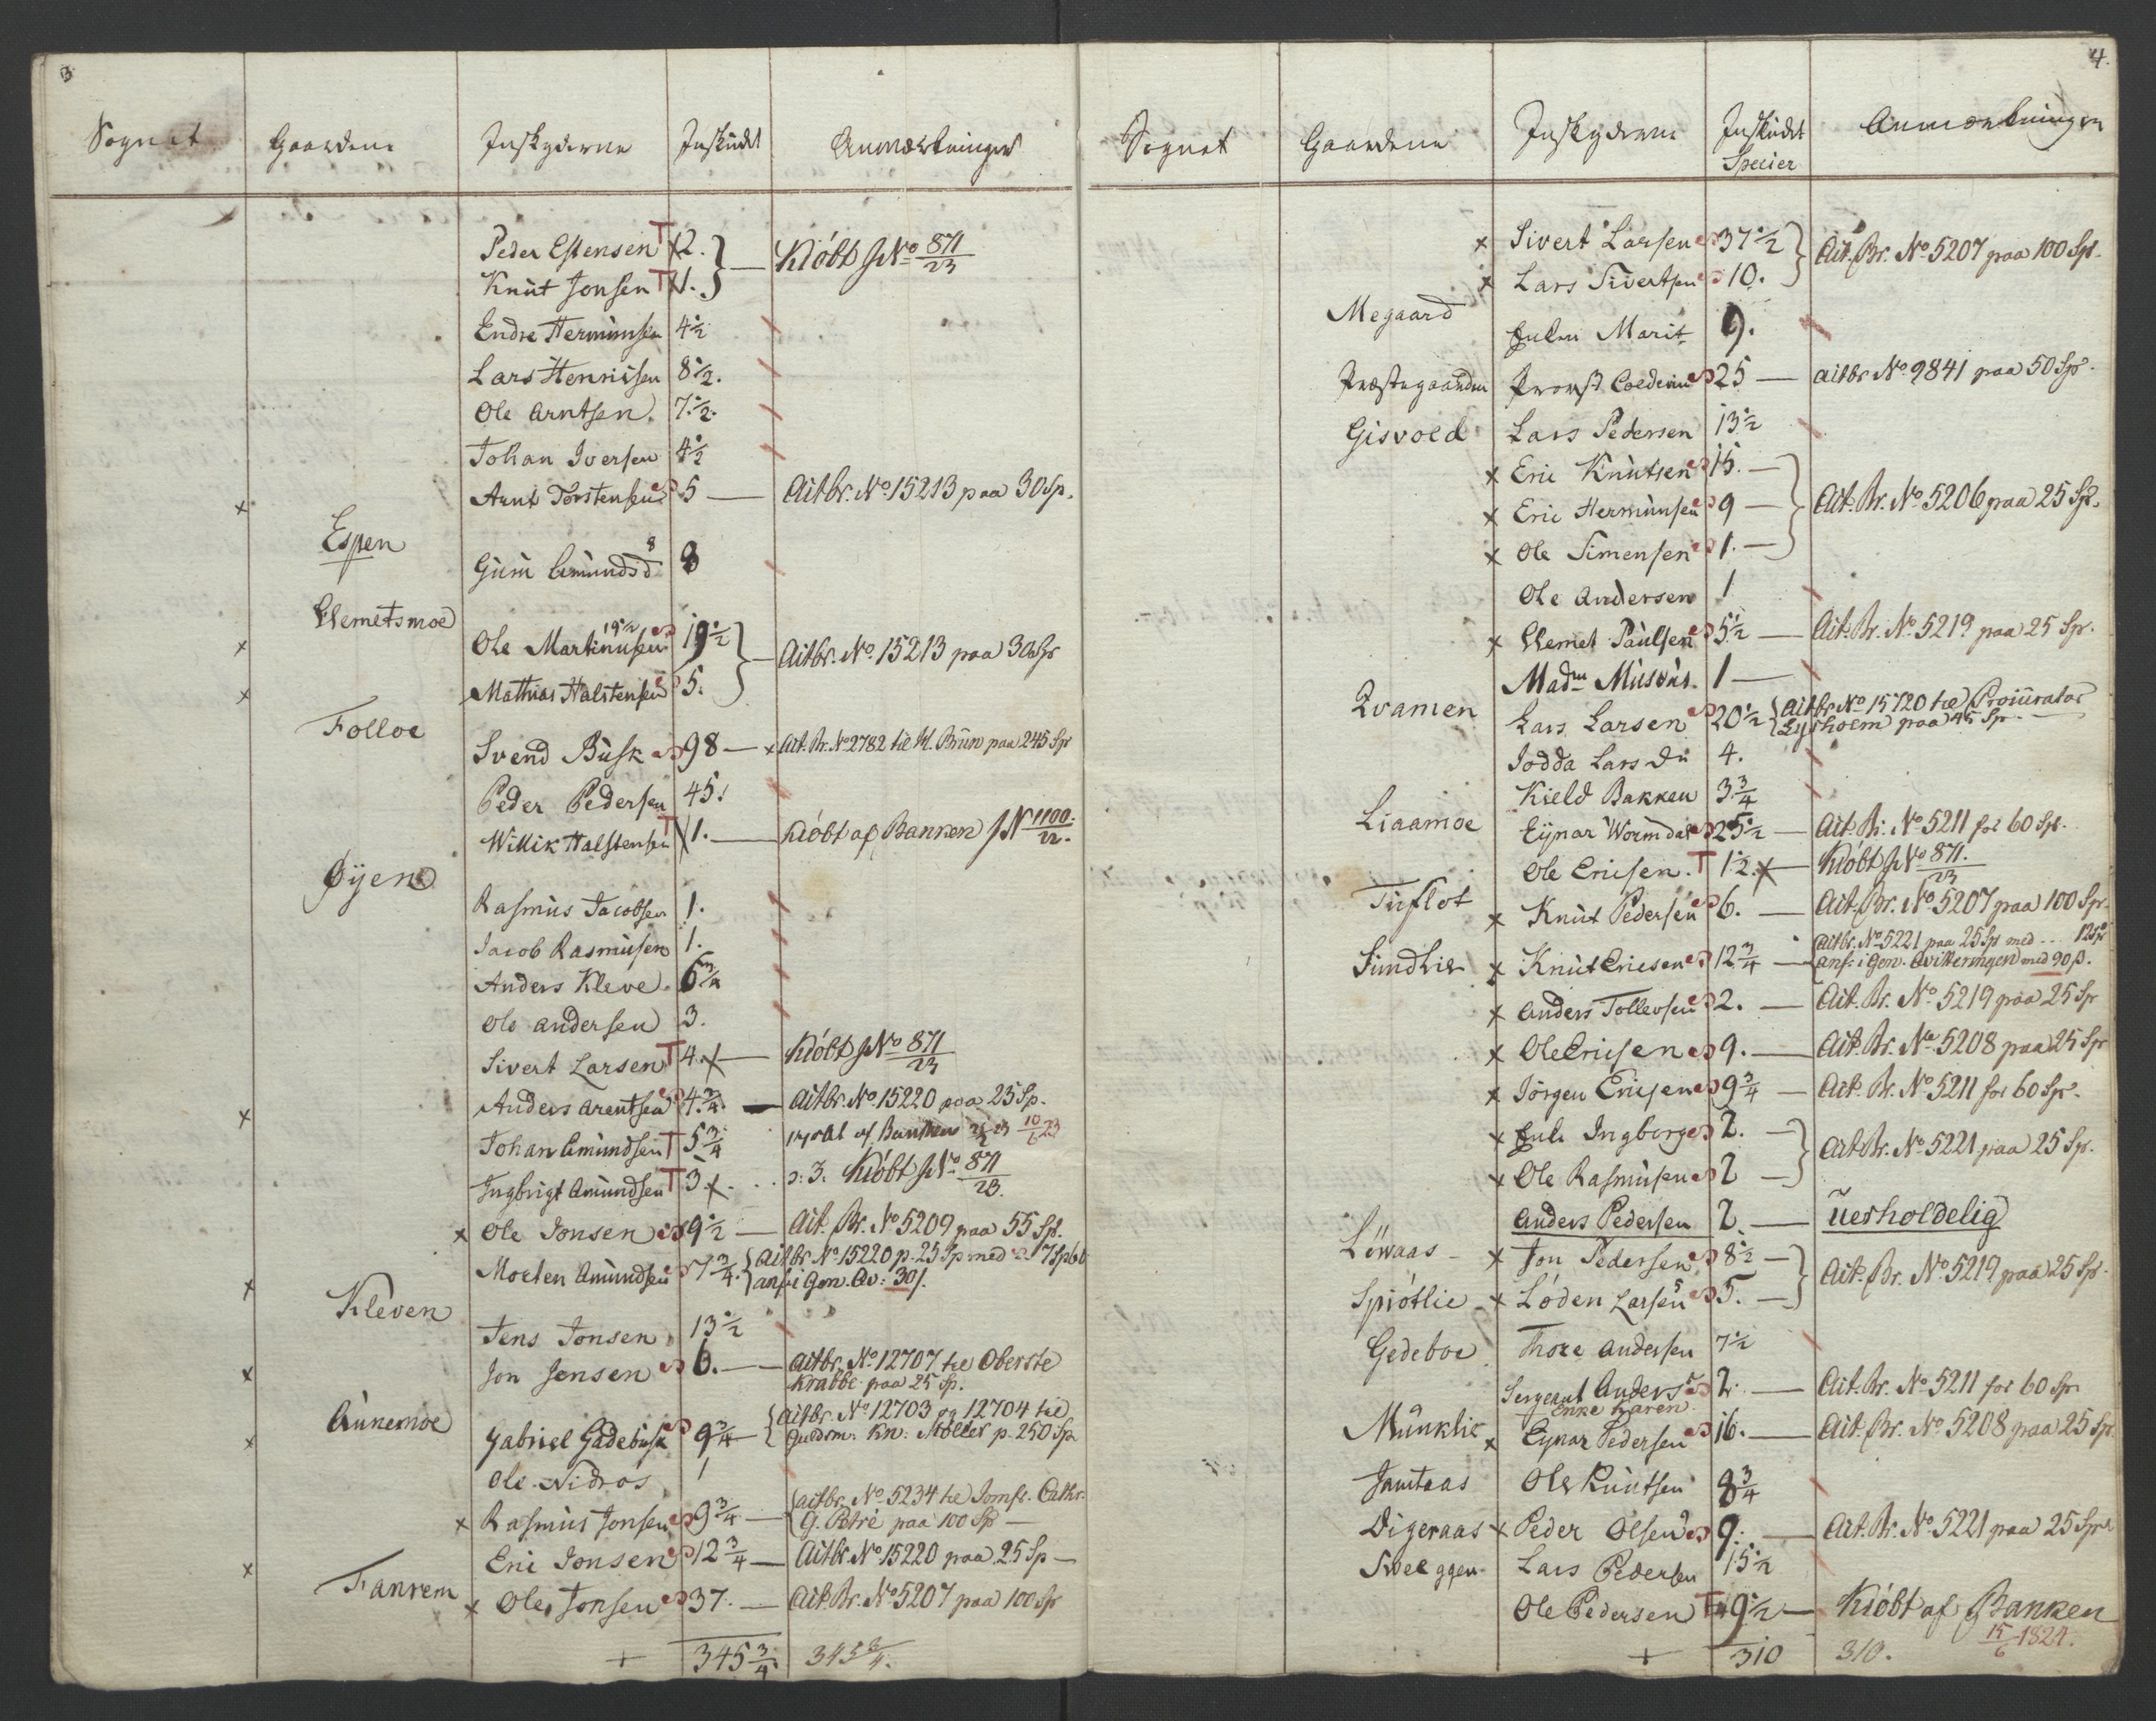 3
Sognet Gaardene Indskyderne Indskudt Anmærkninger
Peder Estensen T 2.
Kiöbt No 871/23
Knut Jonsen T 1.
Endre Hermunsen 4 1/2
Lars Henrissen 8 1/2.
Ole Arntsen. 7 1/2.
Johan Iversen 4 1/2
x Arnt Torstensen 5 — Aitbr. No 15213 paa 30 Sp.
Espen
Guru Amundsd 8 8
Klemetsmoe
x Ole Martinusen 19 1/2 19 1/2
Aitbr. No. 15213 paa 30 Sp
x Mathias Halstensen 5.
Folloe
Svend Busk 98 — x Ait. Br. No 2782 til H. Brun paa 245 Sp
Peder Pedersen 45.
Willik Halstensen T 1. — Kiöbt af Banken No 1100/22.
Øyen
Rasmus Jacobsen 1.
Jacob Rasmusen 1.
Anders Kleve. 6 3/4
Ole Andersen 3.
Sivert Larsen T 4. x — Kiöbt No 871/23
x Anders Arentsen 4 3/4. — Aitbr. No 15220 paa 25 Sp.
Johan Amundsen T 5 3/4 af Banken 10/6 23
Ingbrigt Amundsen T 3 x. . . 3. Kiöbt No 871/23.
x Ole Jonsen 9 1/2 — Ait. Br. No 5209 paa 55 Sp.
x Morten Amundsen 7 3/4. Aitbr. No 15220 p. 25 Sp med 7 Sp
anf. i Gen. Qv: 30 ß.
Kleven
Jens Jonsen 13 1/2
x Jon Jensen 6. — Aitbr. No 12707 til Oberste
Krabbe paa 25 Sp.
Aunemoe
x Gabriel Gadebusk 9 3/4 — Aitbr. No 12703 og 12704 til
Guldsm. Kn: Möller p. 250 Sp
Ole Nidros 1
x Rasmus Jonsen 9 3/4 — Aitbr. No 5234 til Jomfr. Cathr.
G. Petré paa 100 Sp —
x Eric Jonsen 12 3/4 — Aitbr. No 15220 paa 25 Sp —
Fanrem x Ole Jonsen 37. — Ait. Br. No 5207 paa 100 Sp
+ 345 3/4. 345 3/4.
4.
Sognet Gaardene Indskyderne Indskudt Anmærkninger
Specier
x Sivert Larsen 37 1/2
Ait. Br. No 5207 paa 100 Sp.
x Lars Sivertsen 10.
Megaard
Enken Marit 9.
Præstegaarden Provst Coldevin 25 — aitbr No 9841 paa 50 Sp.
Gisvold Lars Pedersen 13 1/2
x Eric Knutsen 15. —
x Eric Hermunsen 9 — Ait. Br. No 5206 paa 25 Sp.
x Ole Simensen 1. —
Ole Andersen 1
x Klemet Paulsen 5 1/2 — Ait. Br. No 5219 paa 25 Sp.
Madm Musvus. 1 —
Qvamen Lars Larsen 20 1/2 Aitbr No 15120 til Procurator
Lysholm paa 45 Sp. —
Jodda Lars Du 4.
Kield Bakken 3 3/4
Liaamoe Eynar Wormdal 25 1/2 — Ait. Br. No 5211 for 60 Sp.
Ole Ericsen. T 1 1/2. x — Kiöbt No 871./23
Tuflot x Knut Pedersen 6. — Ait. Br. No 5207 paa 100 Sp.
Sundlie x Knut Ericsen 12 3/4 — Aitbr. No 5221 paa 25 Sp med ... 12 Sp
anf: i Gen. Qvitteringen med 90 ß.
x Anders Tollevsen 2. — Ait. Br. No 5219 paa 25 Sp
x Ole Ericsen 9. — Ait. Br. No 5208 paa 25 Sp
x Jörgen Ericsen 9 3/4 — Ait. Br. No 5211 for 60 Sp.
x Enke Ingborg 2. —
Ait. Br. No 5221 paa 25 Sp.
x Ole Rasmusen 2 —
Anders Pedersen 2. — uerholdelig
Löwaas x Jon Pedersen 8 1/2 —
Ait. Br. No 5219 paa 25 Sp.
Spiötlie x Löden Larsen 5 5. —
Gedeboe Thore Andersen 7 1/2
Sergeant Anders 2. — Ait. Br. No 5211 for 60 Sp.
Enke Karen
Munklie x Eynar Pedersen 16. — Ait. Br. No 5208 paa 25 Sp.
Jamtaas Ole Knutsen 8 3/4
Digeraas x Peder Olsen 9. — Ait. Br. No 5221 paa 25 Sp.
Sveeggen Lars Pedersen 15 1/2
Ole Pedersen T 9 1/2 — Kiöbt af Banken
15/6 1824.
+ 310 310.